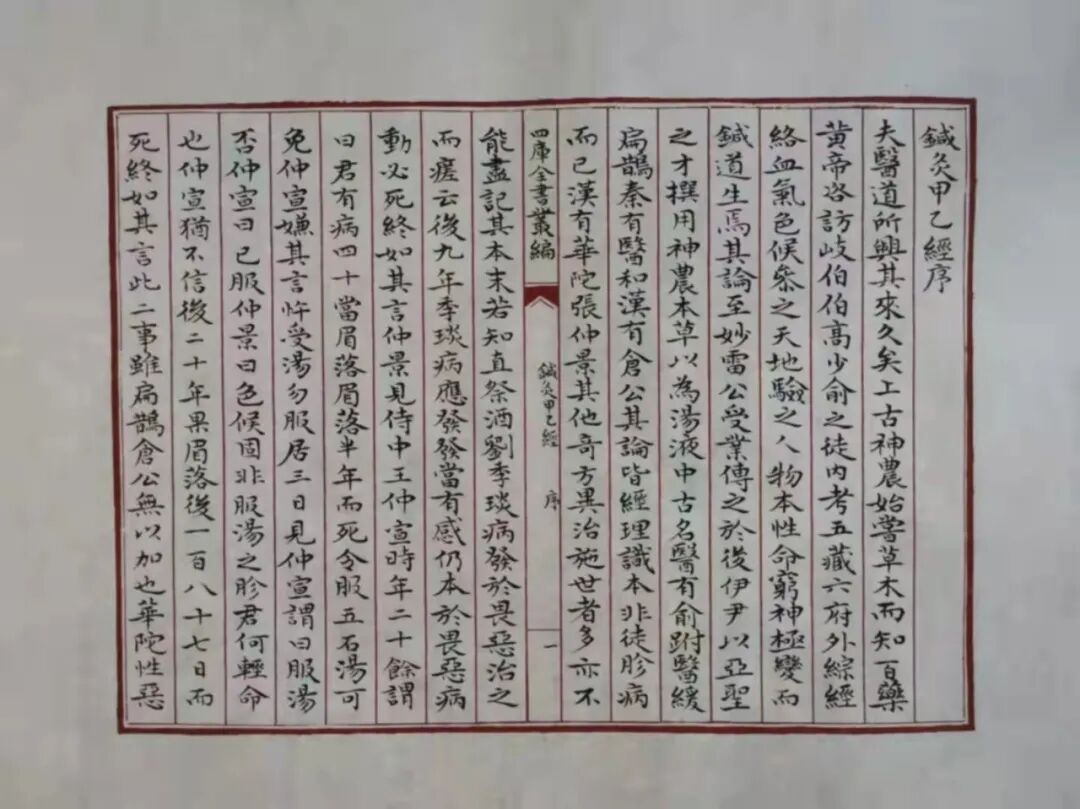 鍼灸甲乙經序
夫醫道所興其來久矣上古神農始嘗草木而知百藥
黃帝咨訪岐伯伯高少俞之徒內考五藏六府外綜經
絡血氣色候參之天地驗之人物本性命窮神極變而
鍼道生焉其論至妙雷公受業傳之於後伊尹以亞聖
之才撰用神農本草以為湯液中古名醫有俞跗醫緩
扁鵲秦有醫和漢有倉公其論皆經理識本非徒胗病
而已漢有華陀張仲景其他奇方異治施世者多亦不
四庫全書叢編
鍼灸甲乙經 序
一
能盡記其本末若知直祭酒劉季琰病發於畏惡治之
而瘥云後九年季琰病應發發當有感仍本於畏惡病
動必死終如其言仲景見侍中王仲宣時年二十餘謂
曰君有病四十當眉落眉落半年而死令服五石湯可
免仲宣嫌其言忤受湯勿服居三日見仲宣謂曰服湯
否仲宣曰已服仲景曰色候固非服湯之胗君何輕命
也仲宣猶不信後二十年果眉落後一百八十七日而
死終如其言此二事雖扁鵲倉公無以加也華陀性惡